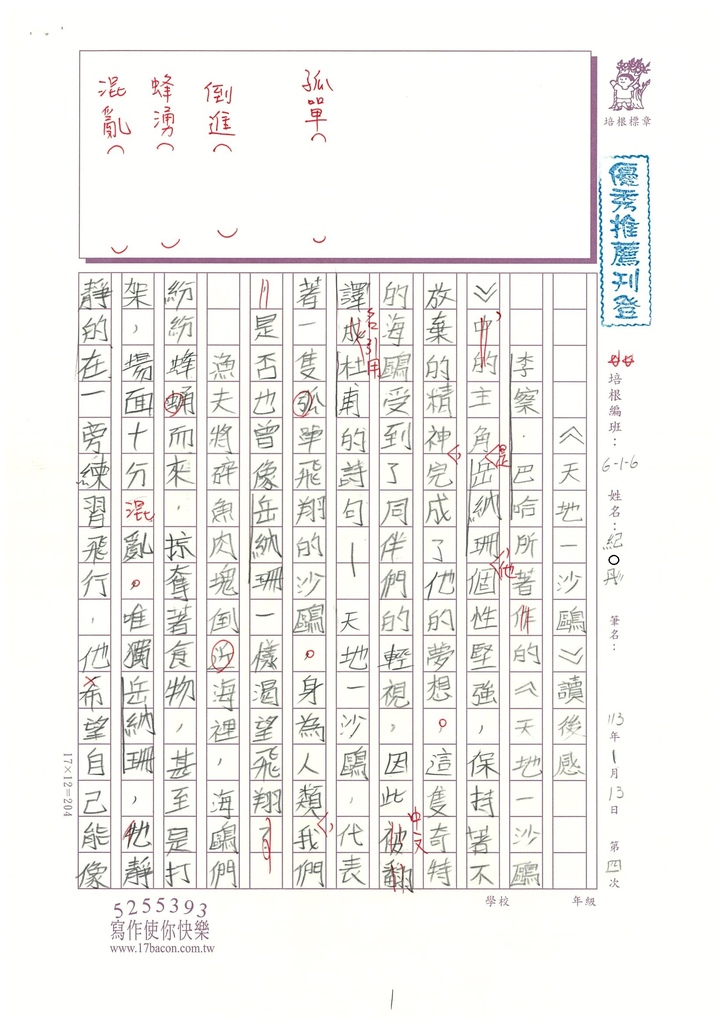 培根標章
優秀推薦刊登
培根編班：6-1-6
姓名：紀○彤
筆名：
113年1月13日
第四次
孤單（ ）
倒進（ ）
蜂湧（ ）
混亂（ ）
《天地一沙鷗》讀後感
李察．巴哈所著作的《天地一沙鷗
》中的主角岳納珊個性堅強，保持著不
是
他
放棄的精神完成了他的夢想。這隻奇特
的海鷗受到了同伴們的輕視，因此被翻
中文
譯成杜甫的詩句—天地一沙鷗，代表
名引用
著一隻孤單飛翔的沙鷗。身為人類我們
是否也曾像岳納珊一樣渴望飛翔了
漁夫將碎魚肉塊倒近海裡，海鷗們
紛紛蜂蛹而來，掠奪著食物，甚至是打
架，場面十分混亂。唯獨岳納珊，牠靜
靜的在一旁練習飛行，他希望自己能像
17×12=204
學校
年級
5255393
寫作使你快樂
www.17bacon.com.tw
1